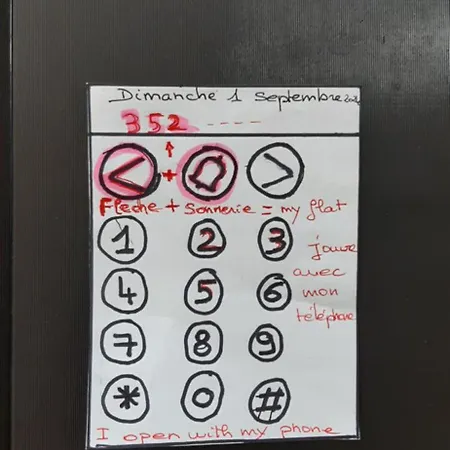 Dimanche 1 Septembre
352 - - - -
↑
< + >
Fleche + Sonnerie = my flat
1 2 3
4 5 6
7 8 9
* 0 #
jouve
avec
mon
téléphone
I open with my phone